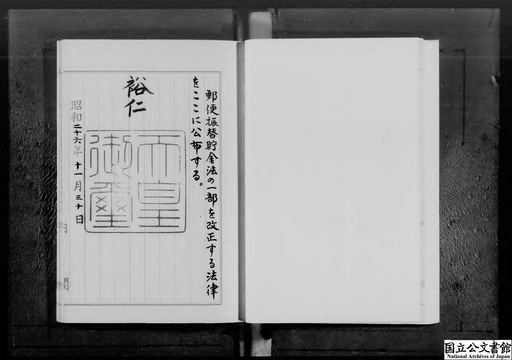 郵便振替貯金法の一部を改正する法律
をここに公布する。
裕仁
天皇
御璽
昭和二十六年十一月三十日
国立公文書館
National Archives of Japan